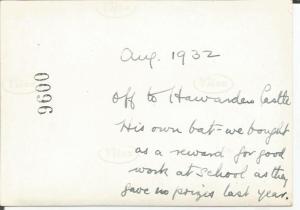 Aug. 1932
0096
off to Hawarden Castle
His own bat - we bought
as a reward for good
work at school as they
gave no prizes last year.